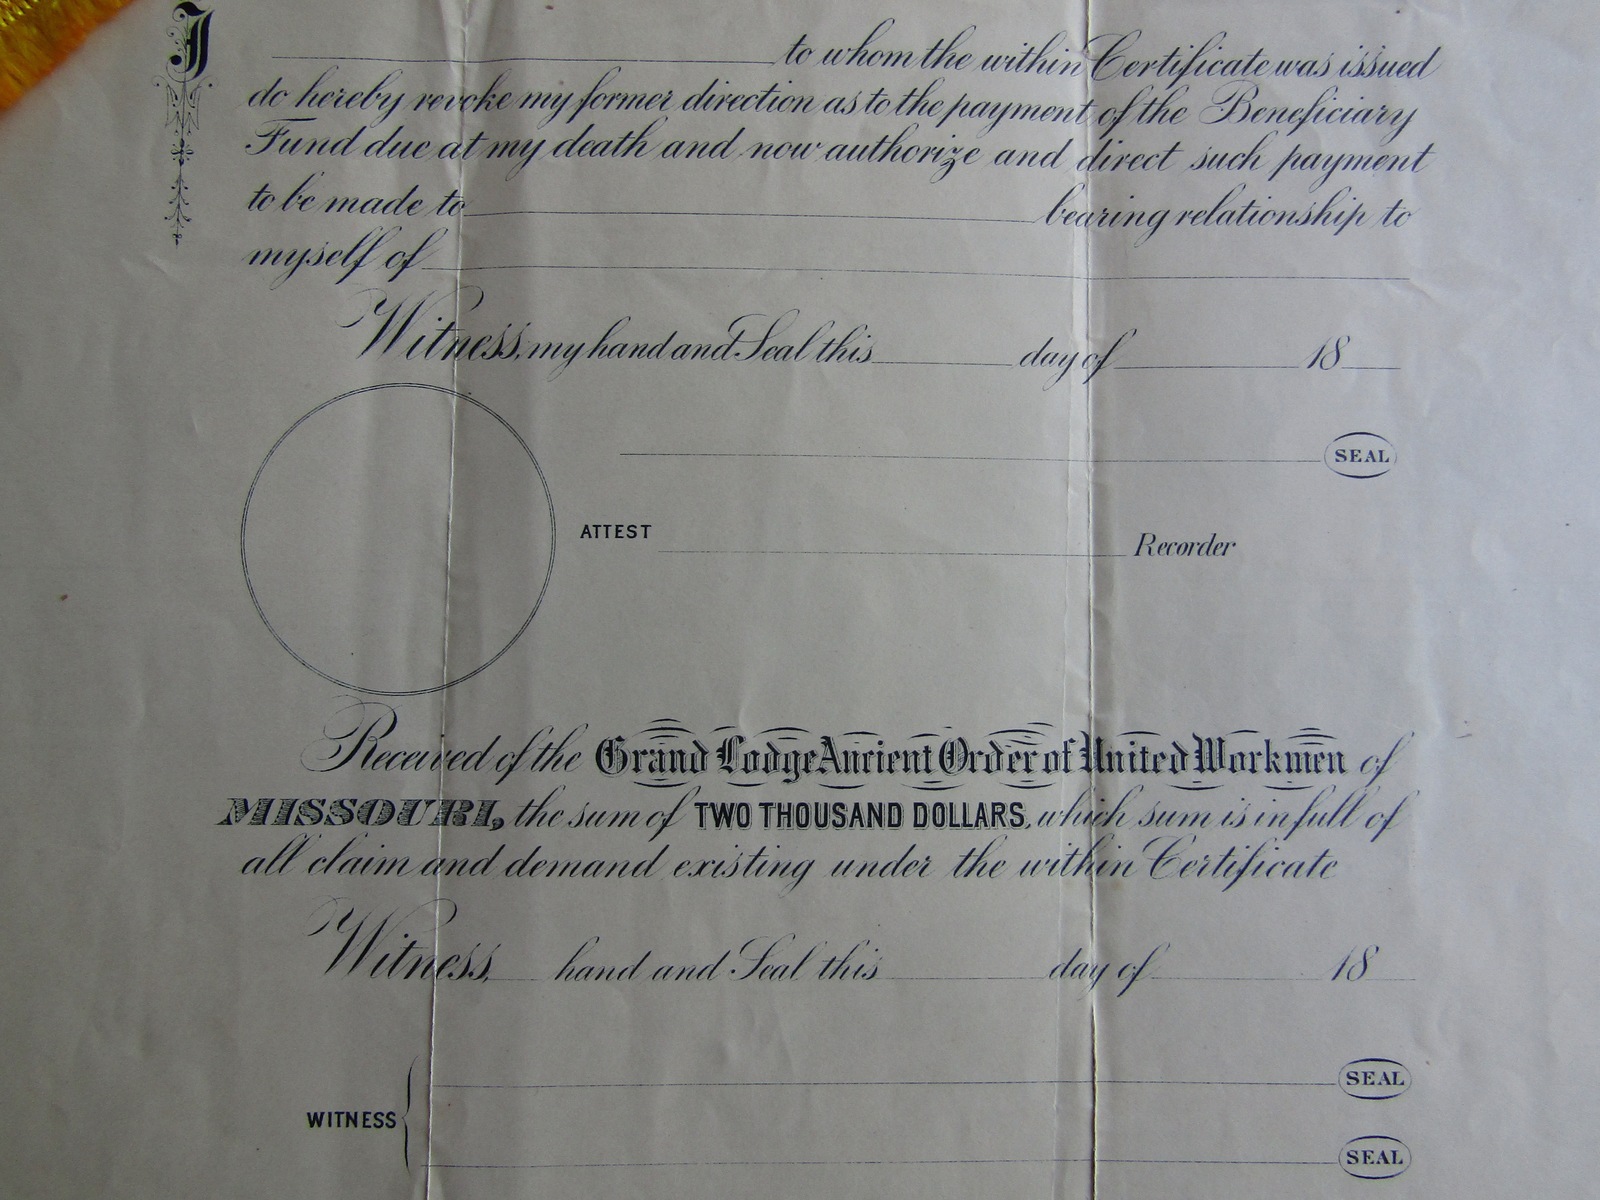 I to whom the within Certificate was issued
do hereby revoke my former direction as to the payment of the Beneficiary
Fund due at my death and now authorize and direct such payment
to be made to bearing relationship to
myself of
Witness, my hand and Seal this day of 18
SEAL
ATTEST Recorder
Received of the Grand Lodge Ancient Order of United Workmen of
MISSOURI, the sum of TWO THOUSAND DOLLARS, which sum is in full of
all claim and demand existing under the within Certificate
Witness, hand and Seal this day of 18
SEAL
WITNESS
SEAL